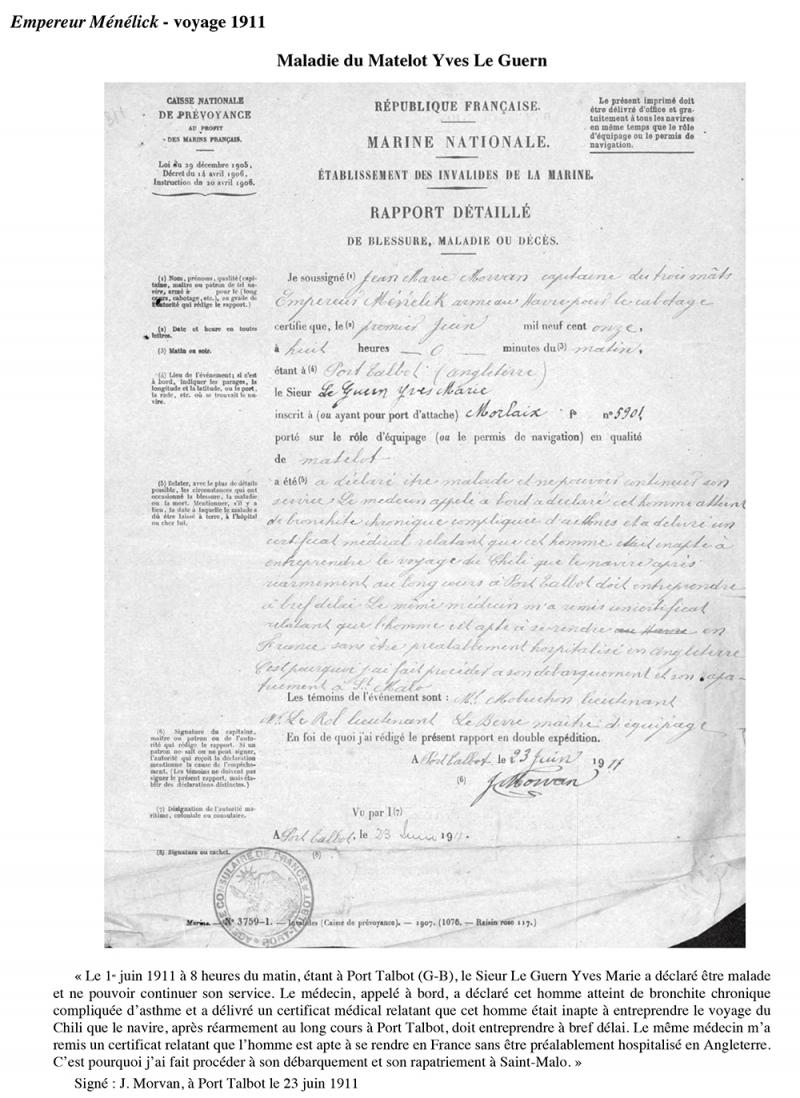 Empereur Ménélick - voyage 1911
Maladie du Matelot Yves Le Guern
CAISSE NATIONALE
DE PRÉVOYANCE
AU PROFIT
DES MARINS FRANÇAIS.
Loi du 29 décembre 1905,
Décret du 14 avril 1906,
Instruction du 20 avril 1906.
RÉPUBLIQUE FRANÇAISE.
MARINE NATIONALE.
ÉTABLISSEMENT DES INVALIDES DE LA MARINE.
RAPPORT DÉTAILLÉ
DE BLESSURE, MALADIE OU DÉCÈS.
Le présent imprimé doit
être délivré d'office et gra-
tuitement à tous les navires
en même temps que le rôle
d'équipage ou le permis de
navigation.
(1) Nom, prénoms, qualité (capi-
taine, maître ou patron de tel na-
vire, armé à pour le (long
cours, cabotage, etc.), ou grade de
l'autorité qui rédige le rapport.)
(2) Date et heure en toutes
lettres.
(3) Matin ou soir.
(4) Lieu de l'événement; si c'est
à bord, indiquer les parages, la
longitude et la latitude, ou le port,
la rade, etc. où se trouvait le na-
vire.
(5) Relater, avec le plus de détails
possible, les circonstances qui ont
occasionné la blessure, la maladie
ou la mort. Mentionner, s'il y a
lieu, la date à laquelle le malade a
dû être laissé à terre, à l'hôpital
ou chez lui.
Je soussigné (1) Jean Marie Morvan capitaine du trois mâts
Empereur Ménélik armé au Havre pour le cabotage
certifie que, le (2) premier Juin mil neuf cent onze,
à huit heures 0 minutes du (3) matin,
étant à (4) Port Talbot (angleterre)
le Sieur Le Guern Yves Marie
inscrit à (ou ayant pour port d'attache) Morlaix fº nº 5901
porté sur le rôle d'équipage (ou le permis de navigation) en qualité
de matelot
a été (5) a déclaré être malade et ne pouvoir continuer son
service. Le médecin appelé à bord a déclaré cet homme atteint
de bronchite chronique compliquée d'asthmes et a délivré un
certificat médical relatant que cet homme était inapte à
entreprendre le voyage du Chili que le navire après
réarmement au long cours à Port Talbot doit entreprendre
à bref délai Le même médecin m'a remis un certificat
relatant que l'homme est apte à se rendre au Havre en
France sans être préalablement hospitalisé en angleterre
C'est pourquoi j'ai fait procéder à son débarquement et son rapa-
triement à St Malo
Les témoins de l'événement sont : Mr Mobuchon lieutenant
Mr Le Rol lieutenant Le Berre maître d'équipage
En foi de quoi j'ai rédigé le présent rapport en double expédition.
A Port Talbot, le 23 juin 1911
(6) J Morvan
(6) Signature du capitaine,
maître ou patron ou de l'auto-
rité qui rédige le rapport. Si un
patron ne sait ou ne peut signer,
l'autorité qui reçoit la déclaration
mentionne la cause de l'empêche-
ment. (Les témoins ne doivent pas
signer le présent rapport, mais éta-
blir des déclarations distinctes.)
(7) Désignation de l'autorité ma-
ritime, coloniale ou consulaire.
Vu par l (7)
A Port Talbot, le 23 Juin 1911.
(8) Signature ou cachet.
(8)
AGENCE CONSULAIRE DE FRANCE
PORT-TALBOT
Marine. — Nº 3759-1. — Invalides (Caisse de prévoyance). — 1907. (1076. — Raisin rose 117.)
« Le 1er juin 1911 à 8 heures du matin, étant à Port Talbot (G-B), le Sieur Le Guern Yves Marie a déclaré être malade
et ne pouvoir continuer son service. Le médecin, appelé à bord, a déclaré cet homme atteint de bronchite chronique
compliquée d'asthme et a délivré un certificat médical relatant que cet homme était inapte à entreprendre le voyage du
Chili que le navire, après réarmement au long cours à Port Talbot, doit entreprendre à bref délai. Le même médecin m'a
remis un certificat relatant que l'homme est apte à se rendre en France sans être préalablement hospitalisé en Angleterre.
C'est pourquoi j'ai fait procéder à son débarquement et son rapatriement à Saint-Malo. »
Signé : J. Morvan, à Port Talbot le 23 juin 1911